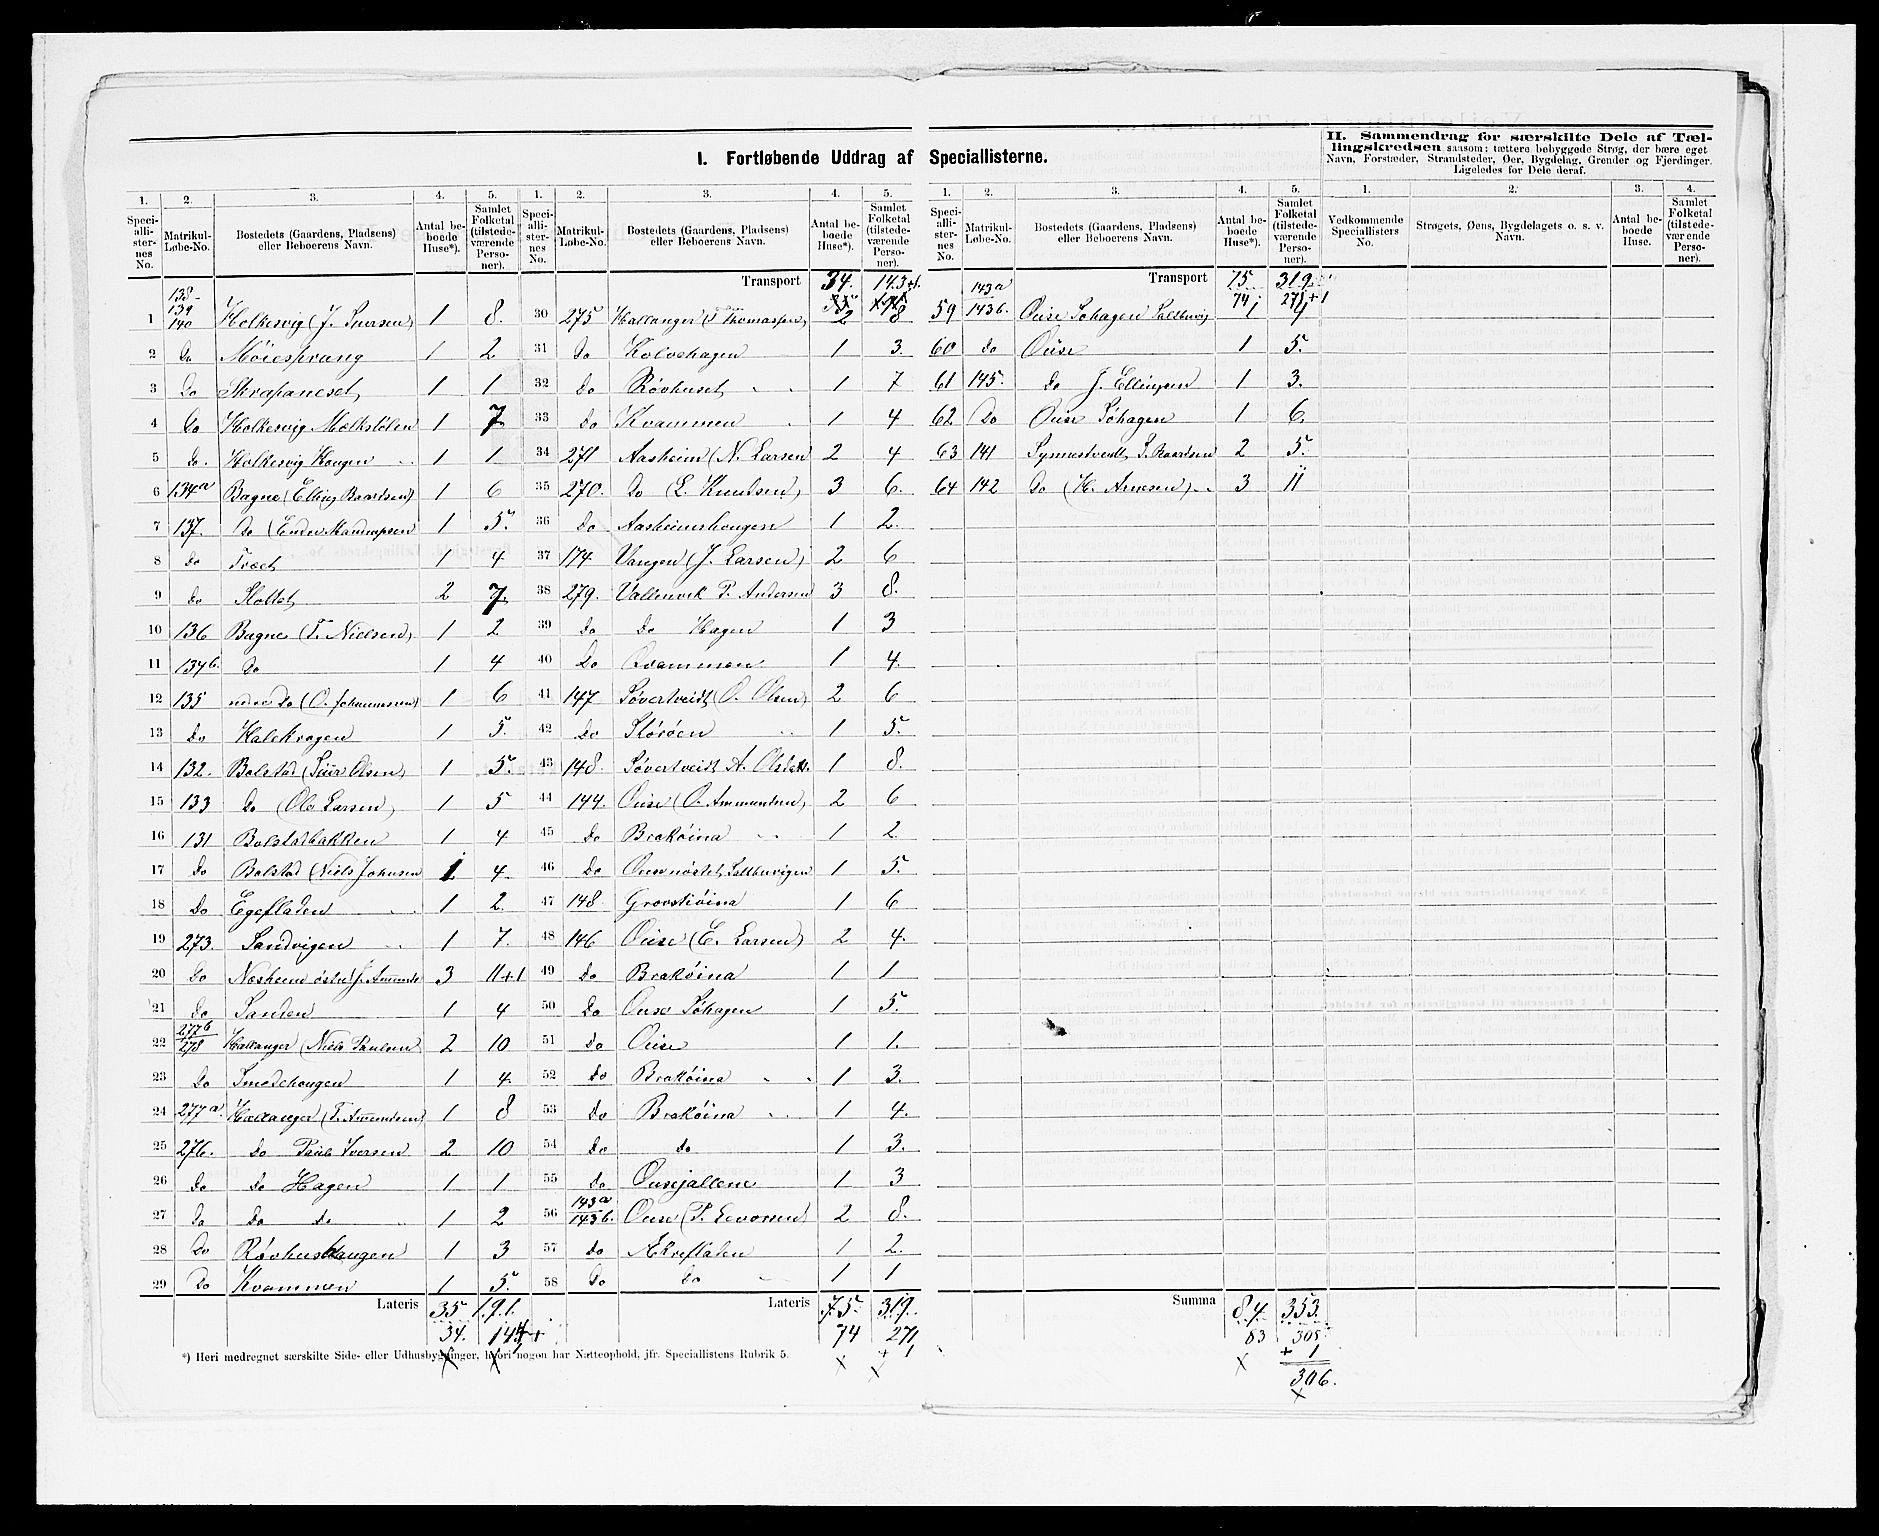 I. Fortløbende Uddrag af Speciallisterne.
II. Sammendrag for særskilte Dele af Tæl-
lingskredsen saasom: tættere bebyggede Strøg, der bære eget
Navn, Forstæder, Strandsteder, Øer, Bygdelag, Grender og Fjerdinger.
Ligeledes for Dele deraf.
1. 2. 3. 4. 5. 1. 2. 3. 4. 5. 1. 2. 3. 4. 5. 1. 2. 3. 4.
Speciallisternes No. Matrikul-Løbe-No. Bostedets (Gaardens, Pladsens) eller Beboerens Navn. Antal beboede Huse*). Samlet Folketal (tilstedeværende Personer).
Speciallisternes No. Matrikul-Løbe-No. Bostedets (Gaardens, Pladsens) eller Beboerens Navn. Antal beboede Huse*). Samlet Folketal (tilstedeværende Personer).
Speciallisternes No. Matrikul-Løbe-No. Bostedets (Gaardens, Pladsens) eller Beboerens Navn. Antal beboede Huse*). Samlet Folketal (tilstedeværende Personer).
Vedkommende Speciallisters No. Strøgets, Øens, Bygdelagets o. s. v. Navn. Antal beboede Huse. Samlet Folketal (tilstedeværende Personer).
1 138-139 140 Holkesvig (J. Sversen) 1 8.
2 Do Möiesprang 1 2
3 Do Skrapaneset 1 1
4 Do Holkesvig Mælkstölen 1 7
5 Do. Holkesvig Hougen 1 1
6 134a Bagne (Elling Baardsen) 1 6
7 137. Do (Ender Mandrupsen 1 5.
8 Do Træet 1 4
9 Do Slottet 2 7.
10 136 Bagne (T. Nielsen) 1 2
11 134b. Do 1 4
12 135 nedre Do (O. Johannesen) 1 6
13 Do Halekragen 1 5.
14 132. Bolstad (Siur Olsen) 1 5.
15 133 Do (Ole Larsen) 1 5
16 131 Bolstadbakken 1 4
17 Do Bolstad (Niels Johnsen 1 4.
18 Do Egefladen 1 2.
19 273. Sandvigen 1 7.
20 Do Næsheim östre J. Amunds 3 11+1
21 Do Sanden 1 4
22 277b 278 Hallanger (Niels Paulsen) 2 10
23 Do Smedehougen 1 4.
24 277a. Hallanger (T. Amundsen) 1 8
25 276. Do Paul Iversen 2 10
26 Do Do Hagen 1 1
27 Do Do Do 1 2
28 Do Rövhushaugen 1 3
29 Do Kvammen 1 5.
Lateris 35 191.
34. 144
Transport 34. 143+1.
30 275 Hallanger (T. Thomassen) 2 8
31 Do Kolvehagen 1 3.
32 Do Rövhuset 1 7
33 Do Kvammen 1 4
34 271 Aasheim (N. Larsen 2 4
35 270. Do (L. Knudsen) 3 6.
36 Do Aasheimshougen 1 2.
37 174 Vangen (J. Larsen) 2 6
38 279. Vallervik P. Andersen 3 8.
39 Do Do Hagen 1 3
40 Do Qvammen 1 4.
41 147 Sövertveidt (O. Olsen) 2 6
42 Do Störöen 1 5.
43 148. Sövertveidt A. Olsdatt. 1 8.
44 144. Ouse (O. Ammundsen) 2 6
45 Do Braköina 1 2.
46 Do Ousenöstet Saltbuvigen 1 5.
47 148. Grovstiöina 1 6
48 146 Ouse (E. Larsen) 2 4.
49 Do Braköina 1 1
50 Do Ouse Söhagen 1 5.
51 Do Ouse 1 1.
52 Do Braköina 1 3.
53 Do Braköina 1 4.
54 Do do 1 3.
55 Do Ousejallene 1 3
56 143a 143b. Ouse (P. Levorsen) 2 8.
57 Do Ækreflaten 1 2.
58 Do Do 1 1
Lateris 75. 319.
74 271
+ 1
Transport 75 319.
74 271+1
59 143a 143b. Ouse Söhagen Saltbuvig 1 4
60 Do Ouse 1 5.
61 145. Do J. Ellingsen 1 3.
62 Do Ouse Söhagen 1 6.
63 141 Synnestvedt S. Baardsen 2 5.
64 142 Do (H. Arnesen) 3 11
Summa 84. 353.
83 305
+ 1
306.
*) Heri medregnet særskilte Side- eller Udhusbygninger, hvori nogen har Natteophold, jfr. Speciallistens Rubrik 5.